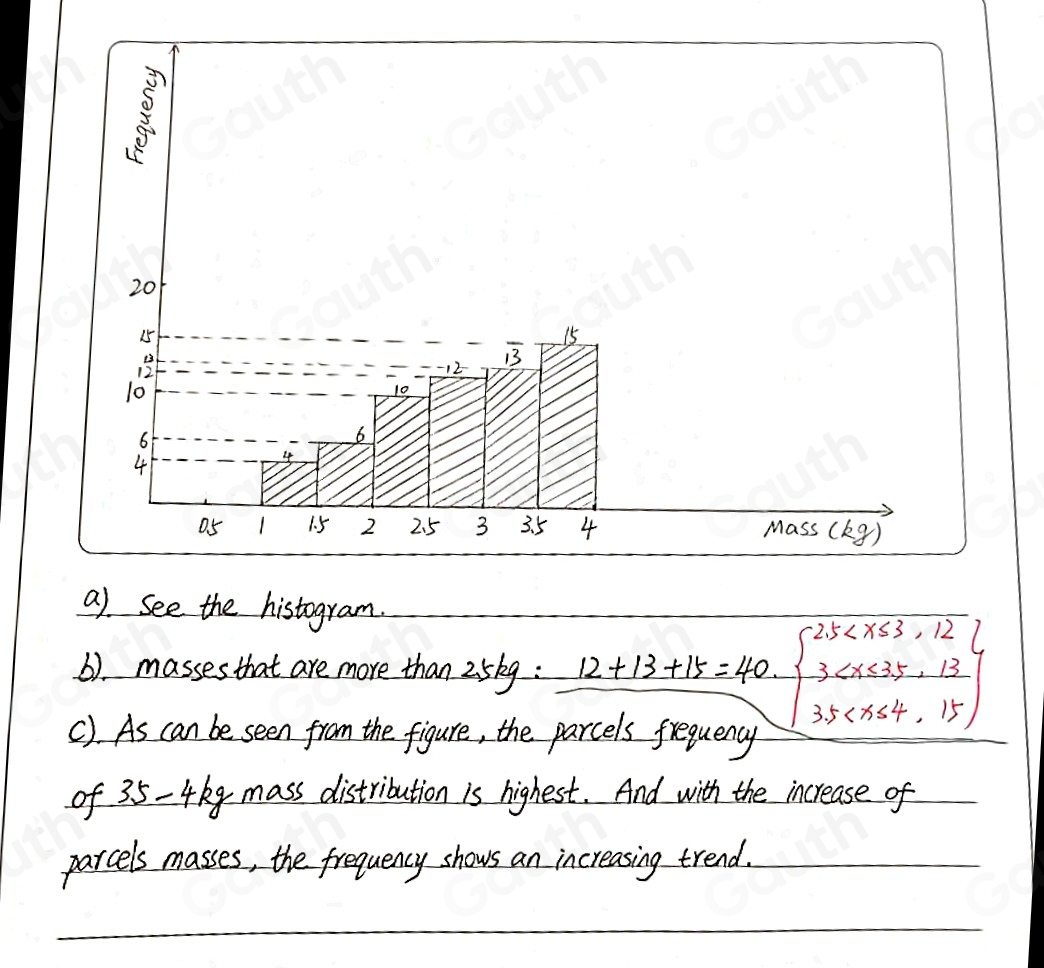 Frequency
20
15
13
12
10
6
4
4
6
10
12
13
15
0.5 1 1.5 2 2.5 3 3.5 4
Mass (kg)
a). See the histogram.
b). masses that are more than 2.5kg : 12+13+15=40.
2.5<x≤3, 12
3<x≤3.5, 13
3.5<x≤4, 15
c). As can be seen from the figure, the parcels frequency
of 3.5-4kg mass distribution is highest. And with the increase of
parcels masses, the frequency shows an increasing trend.
Gauth